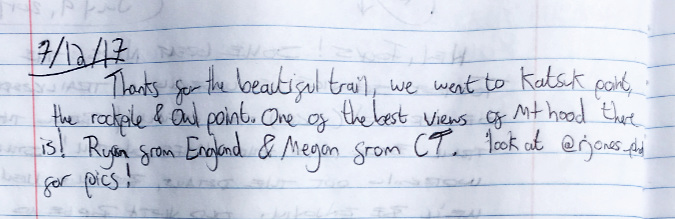 7/12/17
Thanks for the beautiful trail, we went to Katsuk point,
the rockpile & Owl point. One of the best views of Mt hood there
is! Ryan from England & Megan from CT. look at
for pics!